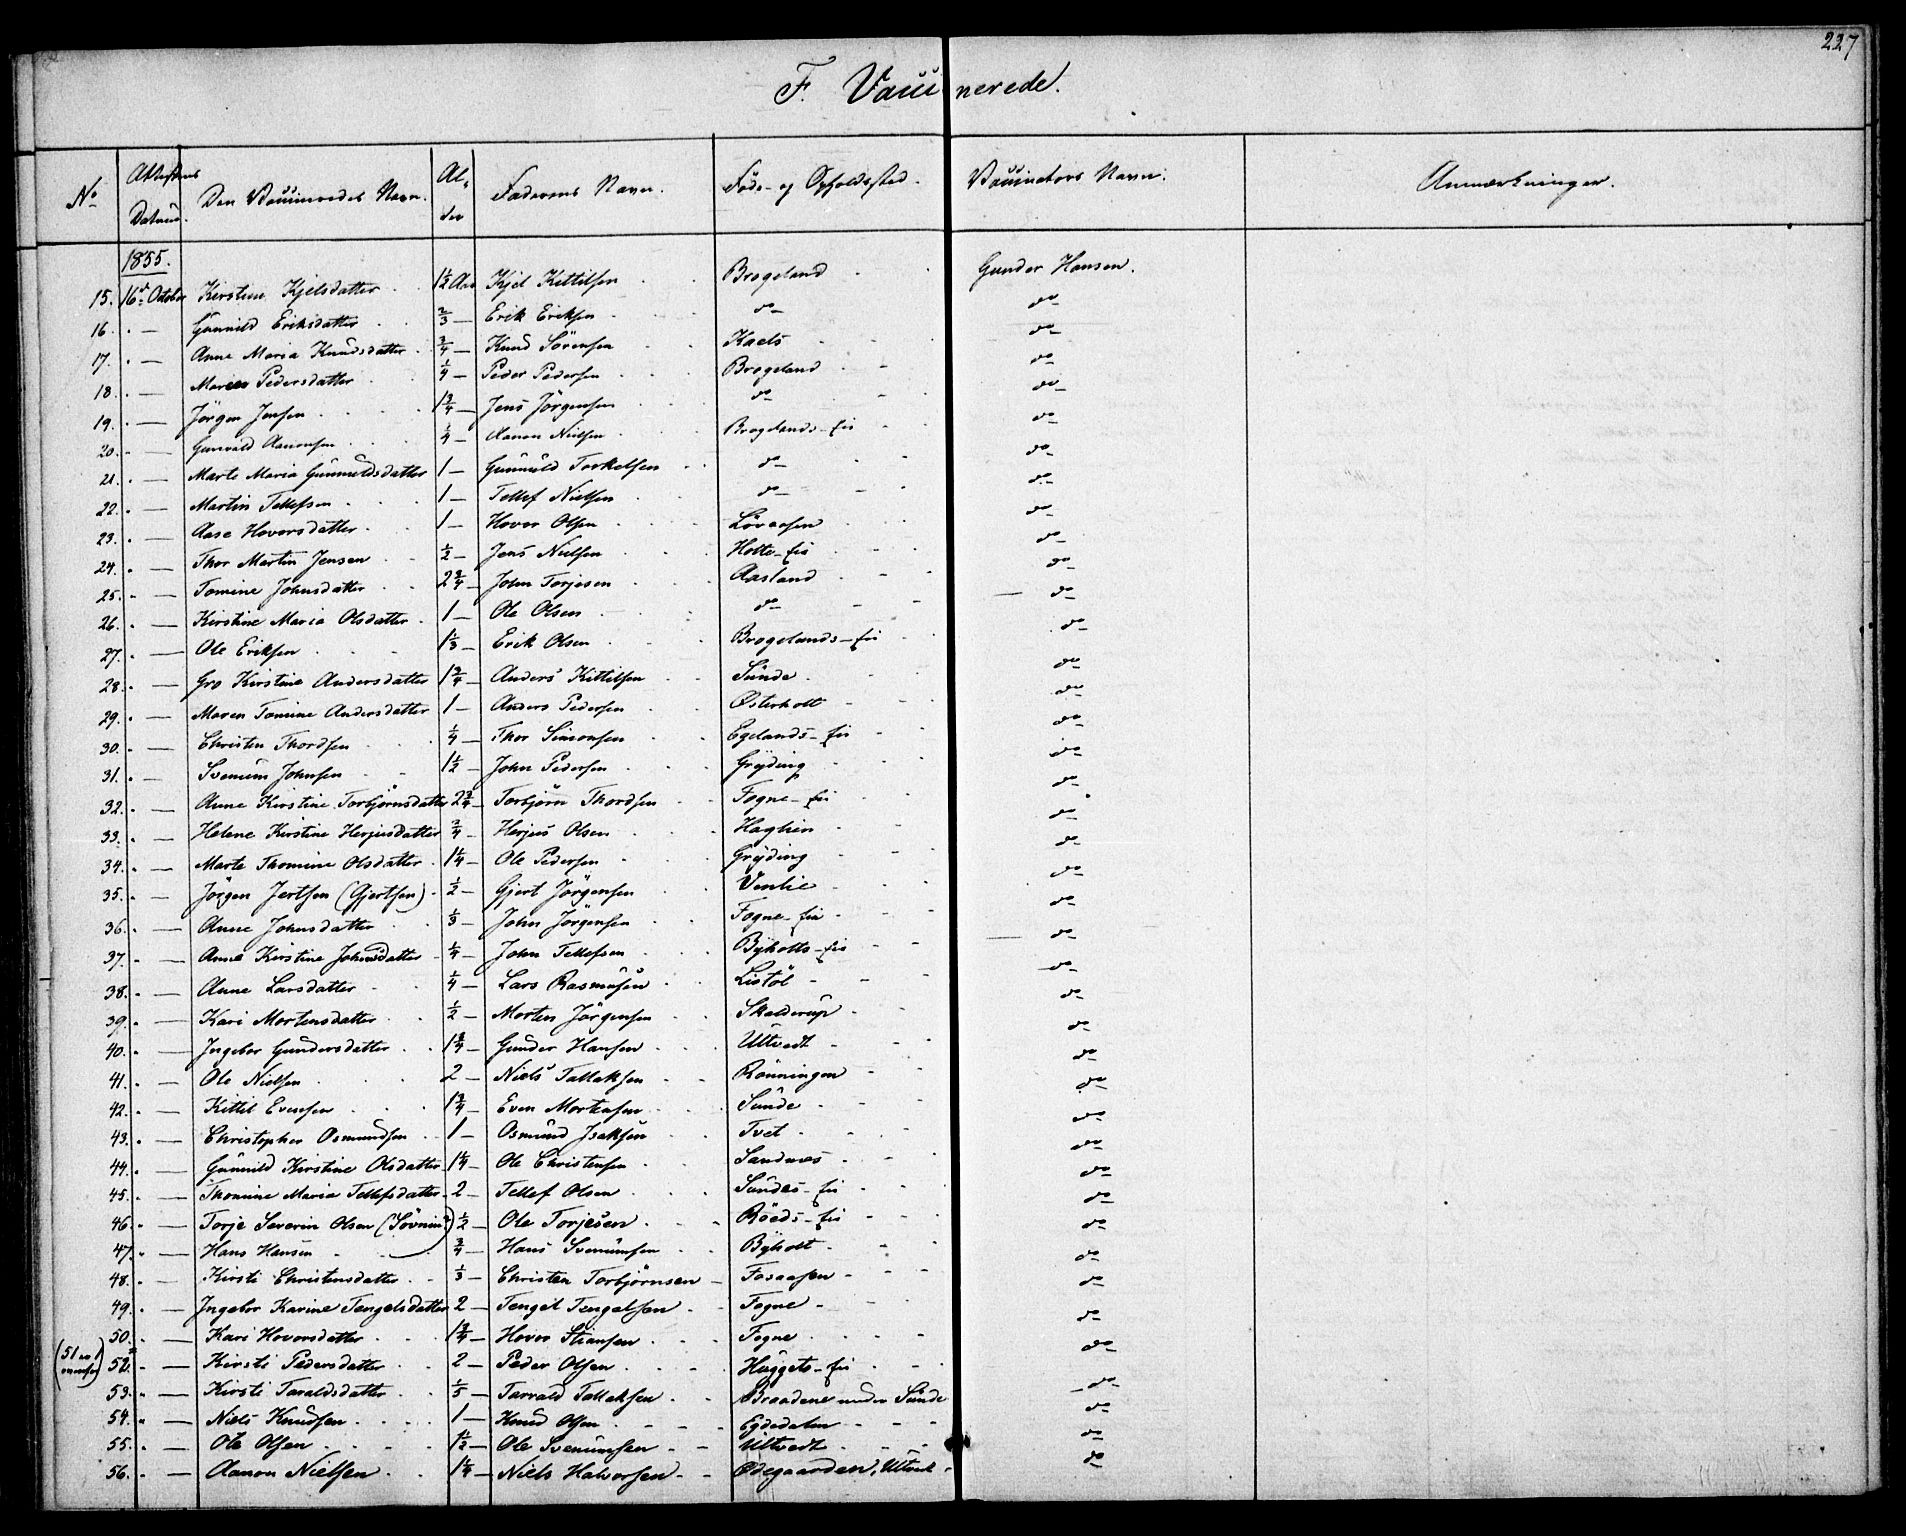 227
F. Vaccinerede.
No | Attestens Datum. | Den Vaccineredes Navn. | Alder | Faderens Navn. | Føde- og Opholdssted. | Vaccinators Navn. | Anmærkninger.
1855.
15. 16de October Kirstine Kjelsdatter 1½ Aar Kjel Kittilsen Brogeland Gunder Hansen.
16. " — Gunnild Eriksdatter ⅔ — Erik Eriksen do do
17. " — Anne Maria Knudsdatter ¾ — Knud Sörensen Kaels do
18. " — Maren Pedersdatter ¼ — Peder Pedersen Brogeland do
19. " — Jörgen Jensen 1¾ — Jens Jörgensen do do
20. " — Gunvald Aanonsen ¼ — Aanon Nielsen Brogelands-eie do
21. " — Marte Maria Gunnuldsdatter 1 — Gunnuld Torkelsen do do
22. " — Martin Tellefsen 1 — Tellef Nielsen do do
23. " — Aase Hovorsdatter 1 — Hovor Olsen Lövaasen do
24. " — Thor Martin Jensen ½ — Jens Nielsen Holte-eie do
25. " — Tomine Johnsdatter 2¾ — John Torjesen Aasland do
26. " — Kirstine Maria Olsdatter 1 — Ole Olsen do do
27. " — Ole Eriksen 1⅓ — Erik Olsen Brogelands-eie do
28. " — Gro Kirstine Andersdatter 1¾ — Anders Kittilsen Sunde do
29. " — Maren Tomine Andersdatter 1 — Anders Pedersen Østerholt do
30. " — Christen Thordsen ¼ — Thor Simonsen Egelands-eie do
31. " — Svenum Johnsen 1½ — John Pedersen Gryding do
32. " — Anne Kirstine Torbjörnsdatter 2¾ — Torbjörn Thordsen Fogne-eie do
33. " — Helene Kirstine Herjusdatter ¾ — Herjus Olsen Haglien do
34. " — Marte Thomine Olsdatter 1¼ — Ole Pedersen Gryding do
35. " — Jörgen Jertsen (Gjertsen) ½ — Gjert Jörgensen Venlie do
36. " — Anne Johnsdatter ⅓ — John Jörgensen Fogne-eie do
37. " — Anne Kirstine Johnsdatter ¼ — John Tellefsen Byholts-eie do
38. " — Anne Larsdatter ¼ — Lars Rasmusen Listöl do
39. " — Kari Mortensdatter ½ — Morten Jörgensen Skalderup do
40. " — Ingebor Gundersdatter 1¾ — Gunder Hansen Ultvedt do
41. " — Ole Nielsen 2 — Niels Tallaksen Rönningen do
42. " — Kittil Evensen 1¾ — Even Mortensen Sunde do
43. " — Christopher Osmundsen 1 — Osmund Isaksen Tvet do
44. " — Gunnild Kirstine Olsdatter 1¼ — Ole Christensen Sandnes do
45. " — Thomine Maria Tellefsdatter 2 — Tellef Olsen Sundes-eie do
46. " — Torje Severin Olsen (Sövrin?) ½ — Ole Torjesen Röeds-eie do
47. " — Hans Hansen ¾ — Hans Svenumsen Byholt do
48. " — Kirsti Christensdatter ⅓ — Christen Torbjörnsen Fosaasen do
49. " — Ingebor Karine Tengelsdatter 2 — Tengel Tengelsen Fogne do
50. " — Kari Hovorsdatter 1¾ — Hovor Stiansen Fogne do
52. " — Kirsti Pedersdatter 2 — Peder Olsen Huggets-eie do
53. " — Kirsti Taraldsdatter ⅕ — Tarald Tallaksen Braadene under Sunde do
54. " — Niels Knudsen 1 — Knud Olsen Egdedalen do
55. " — Ole Olsen 1½ — Ole Svenumsen Ultvedt do
56. " — Aanon Nielsen 1¼ — Niels Halvorsen Ødegaarden, Ultvedt do